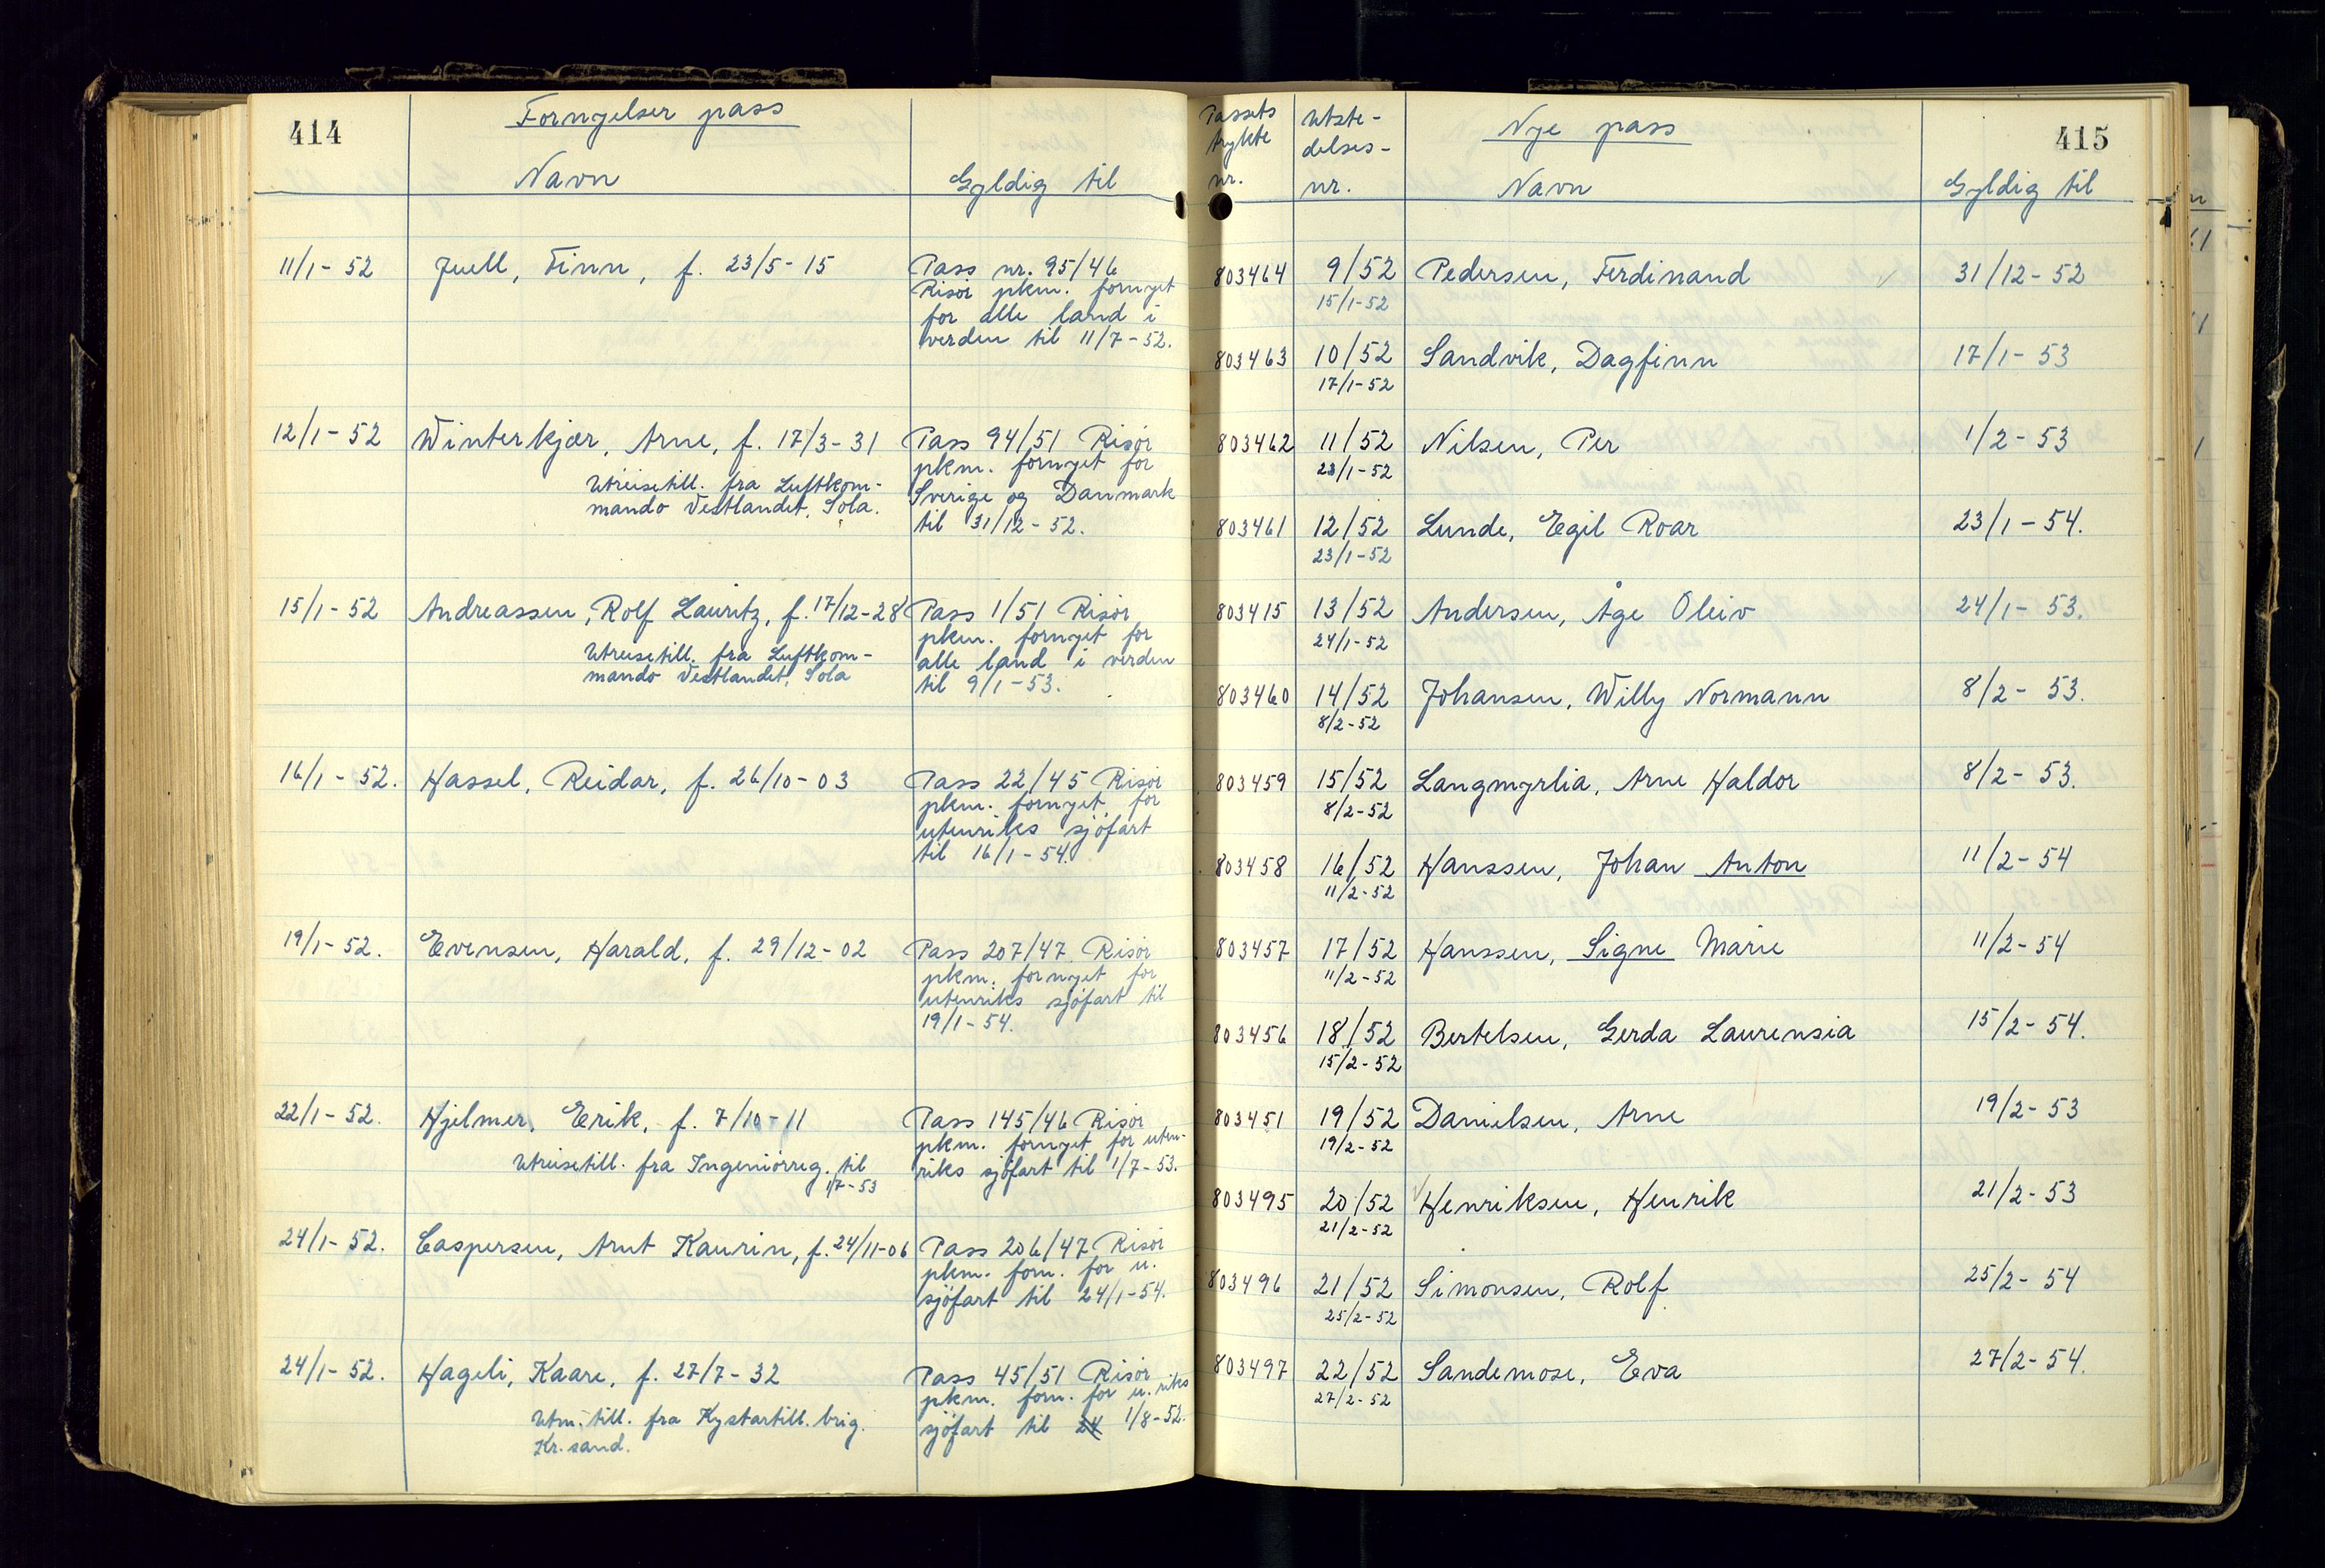 414
Fornyelser pass
Navn
Gyldig til
11/1-52 Juell, Finn, f. 23/5-15 Pass nr. 95/46
Risør pkm. fornyet
for alle land i
verden til 11/7-52.
12/1-52 Winterkjær, Arne, f. 17/3-31 Pass 94/51 Risør
pkm. fornyet for
Utreisetill. fra Luftkom- Sverige og Danmark
mando Vestlandet, Sola. til 31/12-52.
15/1-52 Andreassen, Rolf Lauritz, f. 17/12-28 Pass 1/51 Risør
pkm. fornyet for
Utreisetill. fra Luftkom- alle land i verden
mando Vestlandet, Sola til 9/1-53.
16/1-52. Hassel, Reidar, f. 26/10-03 Pass 22/45 Risør
pkm. fornyet for
utenriks sjøfart
til 16/1-54.
19/1-52. Evensen, Harald, f. 29/12-02 Pass 207/47 Risør
pkm. fornyet for
utenriks sjøfart til
19/1-54.
22/1-52. Hjelmer, Erik, f. 7/10-11 Pass 145/46 Risør
pkm. fornyet for uten-
Utreisetill. fra Ingeniørreg. til riks sjøfart til 1/7-53.
1/7-53
24/1-52. Caspersen, Arnt Kaurin, f. 24/11-06 Pass 206/47 Risør
pkm. forn. for u.
sjøfart til 24/1-54.
24/1-52. Hageli, Kaare, f. 27/7-32 Pass 45/51 Risør
pkm. forn. for u. riks
Utm. till. fra Kystartill. brig. sjøfart til 24 1/8-52.
Kr.sand.
415
Passets Utste- Nye pass
trykte delses-
nr. nr. Navn Gyldig til
803464 9/52 Pedersen, Ferdinand 31/12-52
15/1-52
803463 10/52 Sandvik, Dagfinn 17/1-53
17/1-52
803462 11/52 Nilsen, Per 1/2-53
23/1-52
803461 12/52 Lunde, Egil Roar 23/1-54.
23/1-52
803415 13/52 Andersen, Åge Oleiv 24/1-53.
24/1-52
803460 14/52 Johansen, Willy Normann 8/2-53.
8/2-52
803459 15/52 Langmyrlia, Arne Haldor 8/2-53.
8/2-52
803458 16/52 Hanssen, Johan Anton 11/2-54
11/2-52
803457 17/52 Hanssen, Signe Marie 11/2-54
11/2-52
803456 18/52 Bertelsen, Gerda Laurensia 15/2-54.
15/2-52
803451 19/52 Danielsen, Arne 19/2-53
19/2-52
803495 20/52 Henriksen, Henrik 21/2-53
21/2-52
803496 21/52 Simonsen, Rolf 25/2-54
25/2-52
803497 22/52 Sandemose, Eva 27/2-54.
27/2-52